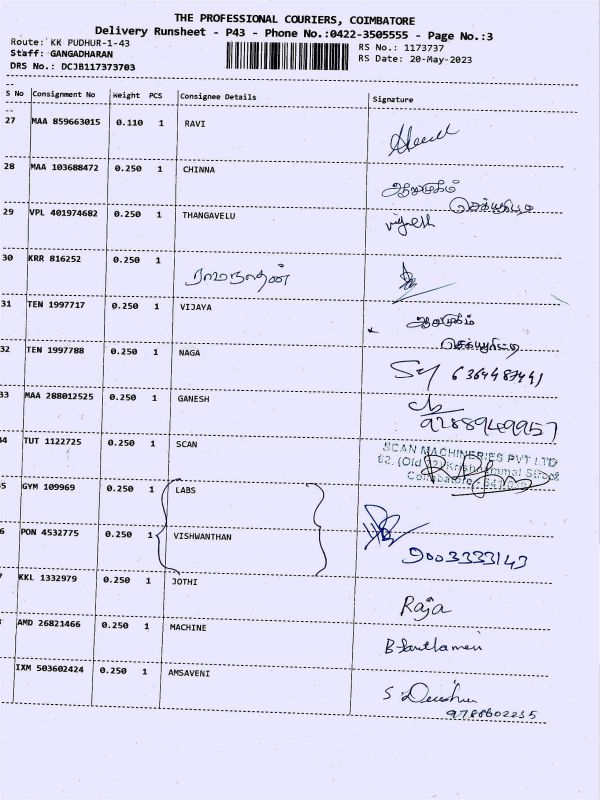 THE PROFESSIONAL COURIERS, COIMBATORE
Delivery Runsheet - P43 - Phone No.:0422-3505555 - Page No.:3
Route: KK PUDHUR-1-43 RS No.: 1173737
Staff: GANGADHARAN RS Date: 20-May-2023
DRS No.: DCJB117373703
S No Consignment No Weight PCS Consignee Details Signature
27 MAA 859663015 0.110 1 RAVI
28 MAA 103688472 0.250 1 CHINNA ஆறுமுகம்
செக்யூரிட்டி
29 VPL 401974682 0.250 1 THANGAVELU vignesh
30 KRR 816252 0.250 1 ராமநாதன்
31 TEN 1997717 0.250 1 VIJAYA ஆறுமுகம்
செக்யூரிட்டி
32 TEN 1997788 0.250 1 NAGA
33 MAA 288012525 0.250 1 GANESH 9288949957
34 TUT 1122725 0.250 1 SCAN SCAN MACHINERIES PVT LTD
62, (Old 32) Krishnammal Street
Coimbatore
5 GYM 109969 0.250 1 LABS
6 PON 4532775 0.250 1 VISHWANTHAN 9003333143
7 KKL 1332979 0.250 1 JOTHI Raja
AMD 26821466 0.250 1 MACHINE
IXM 503602424 0.250 1 AMSAVENI S
9788602235